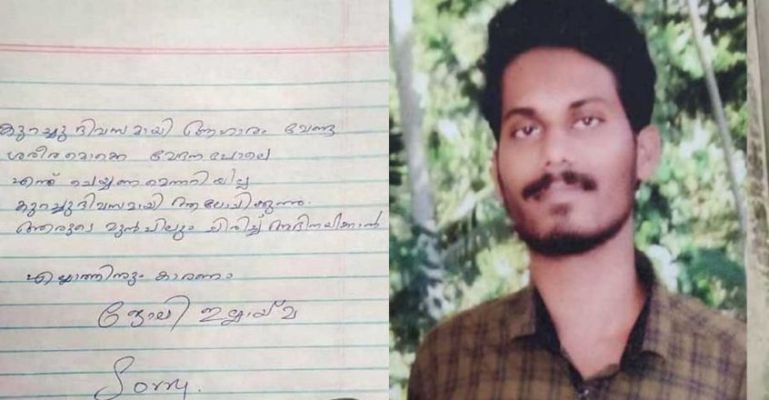 കുറച്ചു ദിവസമായി ആഹാരം വേണ്ട
ശരീരമൊക്കെ വേദന പോലെ
എന്ത് ചെയ്യണമെന്നറിയില്ല
കുറച്ചുദിവസമായി ആലോചിക്കുന്നു.
ആരുടെ മുൻപിലും ചിരിച്ച് അഭിനയിക്കാൻ
എല്ലാത്തിനും കാരണം
ജോലി ഇല്ലായ്മ
Sorry.